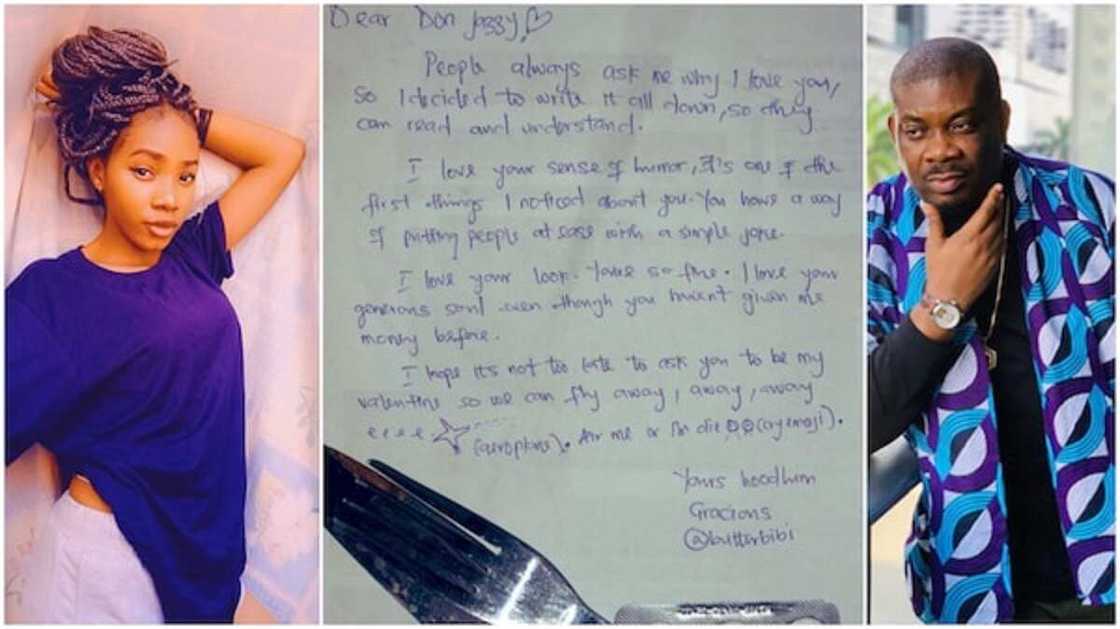 Dear Don Jazzy,♡
People always ask me why I love you,
so I decided to write it all down, so they
can read and understand.
I love your sense of humor, It's one of the
first things I noticed about you. You have a way
of putting people at ease with a simple joke.
I love your look. You're so fine. I love your
generous soul even though you haven't given me
money before.
I hope it's not too late to ask you to be my
valentine so we can fly away, away, away
eeee ☆ (aeroplane). Air me or I'm die (cry emoji).
Yours hoodlum
Gracious
@butterbibi